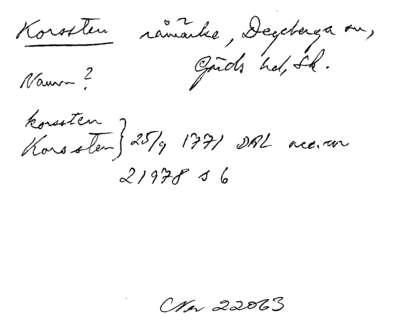 Korssten råmärke, Degeberga sn,
Gärds hd, Sk.
Namn?
korssten
Korssten } 25/9 1771 DAL acc.nr
21978 s 6
22063